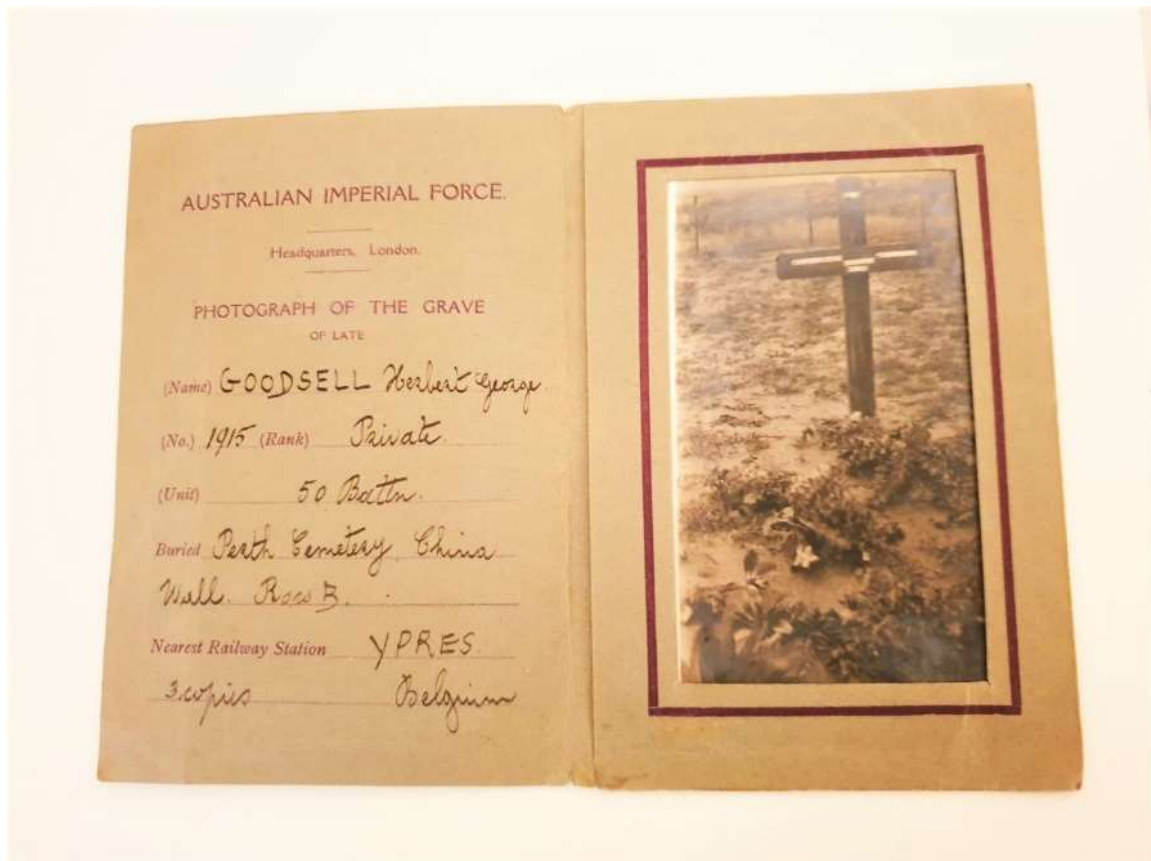 AUSTRALIAN IMPERIAL FORCE.
Headquarters, London.
PHOTOGRAPH OF THE GRAVE
OF LATE
(Name) GOODSELL Herbert George.
(No.) 1915 (Rank) Private.
(Unit) 50 Battn.
Buried Perth Cemetery China
Wall. Row B.
Nearest Railway Station YPRES.
3 copies Belgium